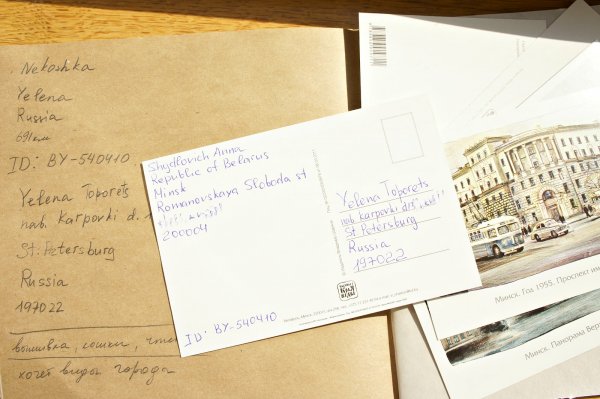 Nekoshka
Yelena
Russia
691 km
ID: BY-540410
Yelena Toporets
nab. Karpovki d. 1
St. Petersburg
Russia
197022
вышивка, кошки, чте
хочет виды города
Shydlovich Anna
Republic of Belarus
Minsk
Romanovskaya Sloboda st
200004
ID: BY-540410
Yelena Toporets
nab. Karpovki
St Petersburg
Russia
197022
Минск. Год 1955. Проспект им
Минск. Панорама Вер